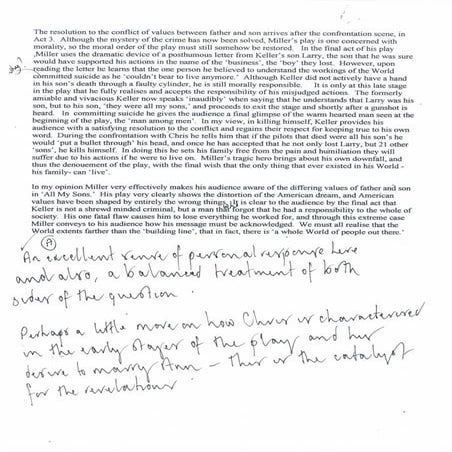 The resolution to the conflict of values between father and son arrives after the confrontation scene, in
Act 3. Although the mystery of the crime has now been solved, Miller's play is one concerned with
morality, so the moral order of the play must still somehow be restored. In the final act of his play
,Miller uses the dramatic device of a posthumous letter from Keller's son Larry, the son that he was sure
would have supported his actions in the name of the 'business', the 'boy' they lost. However, upon
reading the letter he learns that the one person he believed to understand the workings of the World
committed suicide as he 'couldn't bear to live anymore.' Although Keller did not actively have a hand
in his son's death through a faulty cylinder, he is still morally responsible. It is only at this late stage
in the play that he fully realises and accepts the responsibility of his misjudged actions. The formerly
amiable and vivacious Keller now speaks 'inaudibly' when saying that he understands that Larry was his
son, but to his son, 'they were all my sons,' and proceeds to exit the stage and shortly after a gunshot is
heard. In committing suicide he gives the audience a final glimpse of the warm hearted man seen at the
beginning of the play, the 'man among men'. In my view, in killing himself, Keller provides his
audience with a satisfying resolution to the conflict and regains their respect for keeping true to his own
word. During the confrontation with Chris he tells him that if the pilots that died were all his son's he
would 'put a bullet through' his head, and once he has accepted that he not only lost Larry, but 21 other
'sons', he kills himself. In doing this he sets his family free from the pain and humiliation they will
suffer due to his actions if he were to live on. Miller's tragic hero brings about his own downfall, and
thus the denouement of the play, with the final wish that the only thing that ever existed in his World -
his family- can 'live'.
In my opinion Miller very effectively makes his audience aware of the differing values of father and son
in 'All My Sons.' His play very clearly shows the distortion of the American dream, and American
values have been shaped by entirely the wrong things. It is clear to the audience by the final act that
Keller is not a shrewd minded criminal, but a man that forgot that he had a responsibility to the whole of
society. His one fatal flaw causes him to lose everything he worked for, and through this extreme case
Miller conveys to his audience how his message must be acknowledged. We must all realise that the
World extends farther than the 'building line', that in fact, there is 'a whole World of people out there.'
A
An excellent sense of personal response here
and also, a balanced treatment of both
sides of the question.
Perhaps a little more on how Chris is characterised
in the early stages of the play and his
desire to marry Ann - this is the catalyst
for the revelations.